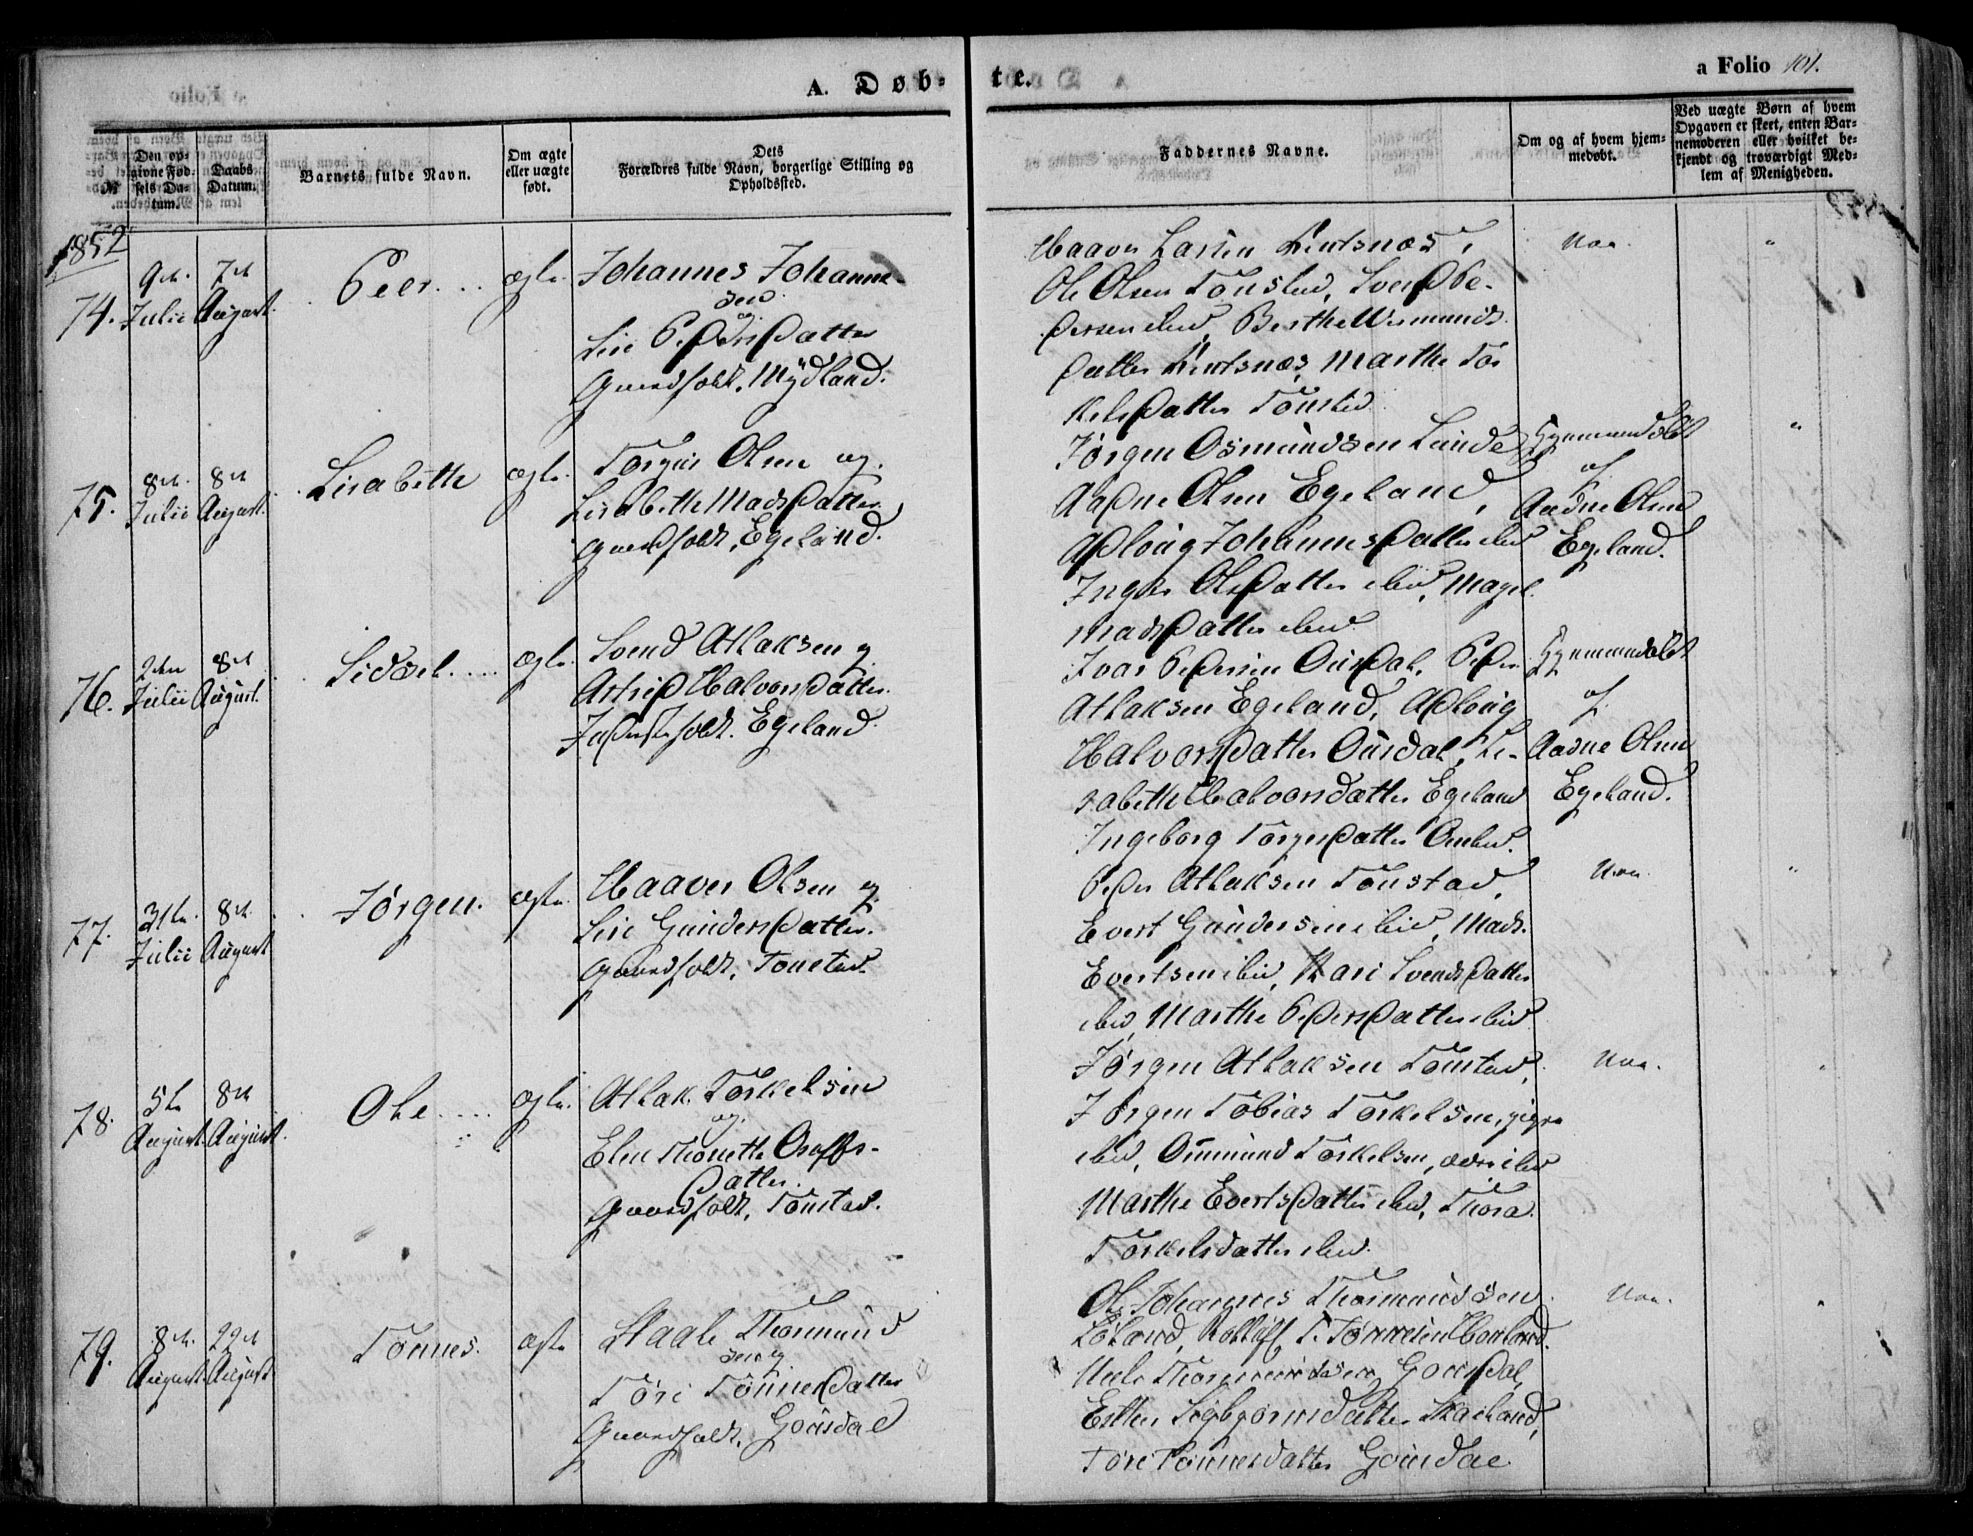 A. Døb-
te.
a Folio 101.
№
Den op-
givne Fød-
sels Da-
tum.
Daabs
Datum.
Barnets fulde Navn.
Om ægte
eller uægte
født.
Dets
Forældres fulde Navn, borgerlige Stilling og
Opholdssted.
Faddernes Navne.
Om og af hvem hjem-
medøbt.
Ved uægte Børn af hvem
Opgaven er skeet, enten Bar-
nemoderen eller hvilket be-
kjendt og troværdigt Med-
lem af Menigheden.
1852
74.
9de
Julii
7de
August.
Peer
ægte
Johannes Johanne-
sen
og
Siri PedersDatter
Gaardfolk, Mydland.
Haaver Larsen
Ole Olsen Tonstad, Svend Pe-
dersen ibid, Berthe Osmunds
Datter Marthe Tor
kelsDatter Tonstad
Nei.
"
75.
8de
Julii
8de
August.
Lisabeth
ægte
Torger Olsen og
Lisabeth MadsDatter
Gaardfolk, Egeland.
Jørgen Osmundsen Lunde
Aadne Olsen Egeland,
Adloug JohannesDatter ibid
Inger OlsDatter ibid,
MadsDatter ibid.
Hjemmedøbt
af
Aadne Olsen
Egeland.
"
76.
2den
Julii
8de
August.
Sidsel
ægte
Svend Atlaksen og
Astrid HalvorsDatter
Egeland.
Ivar Pedersen Ousdal, Peder
Atlaksen Egeland, Adloug
HalvorsDatter Ousdal, Li-
sabeth Halvorsdatter Egeland
Ingeborg TorgersDatter
Hjemmedøbt
af
Aadne Olsen
Egeland.
77.
31te
Julii
8de
August
Jørgen.
ægte
Haaver Olsen og
Siri GundersDatter
Gaardfolk, Tonstad.
Peder Atlaksen Tonstad,
Evert Gundersen ibid, Mads
Evertsen ibid, Kari SvendsDatter
ibid, Marthe PedersDatter ibid
Nei.
"
78.
5te
August.
8de
August.
Ole
ægte
Atlak Torkelsen
og
Elen Thonette
Datter.
Gaardfolk, Tonstad.
Jørgen Atlaksen Tonstad,
Jørgen Tobias Torkelsen,
ibid, Ommund Torkelsen, ibid
Marthe EvertsDatter ibid, Thora
Torkelsdatter ibid.
Nei.
79.
8de
August.
22de
August
Tønnes.
ægte
Staale Thormund
sen og
Tori TønnesDatter
Gaardfolk, Gousdal
Ole Johannes Thormundsen
T. Tønnesen Houland.
Niels Thormundsen Gousdal,
Esther Sigbjørnsdatter Skailand,
Tore Tønnesdatter Gousdal
Nei.